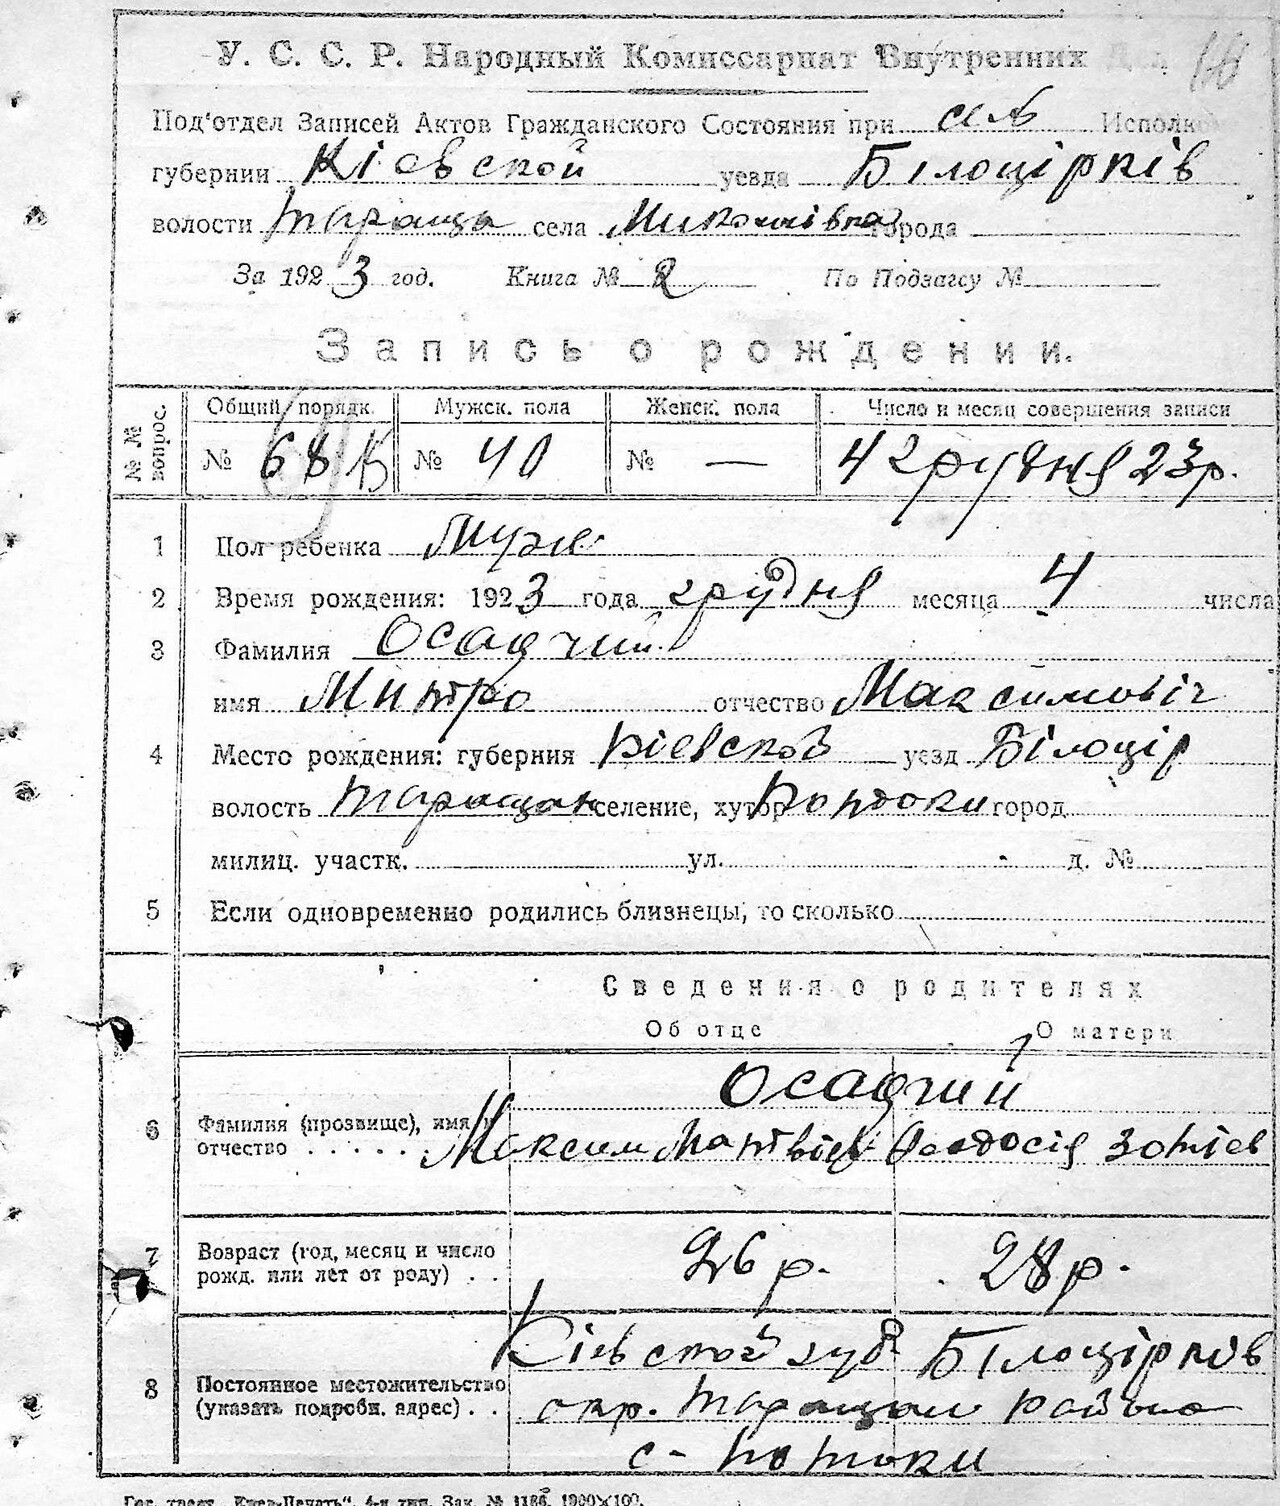 У. С. С. Р. Народный Комиссариат Внутренних Дел
Под'отдел Записей Актов Гражданского Состояния при сель Исполком
губернии Кіевской уезда Білоцірків
волости Тараща села Миколаівка города
За 1923 год. Книга № 2 По Подзагсу №
Запись о рождении.
№№ вопрос.
Общий порядк. Мужск. пола Женск. пола Число и месяц совершения записи
№ 68 № 40 № — 4 грудня 23 р.
1 Пол ребенка Муж.
2 Время рождения: 1923 года грудня месяца 4 числа
3 Фамилия Осадчий
имя Митро отчество Максимовіч
4 Место рождения: губерния Кіевской уезд Білоцір
волость Таращан селение, хутор Потоки город
милиц. участк. ул. д. №
5 Если одновременно родились близнецы, то сколько
Сведения о родителях
Об отце О матери
Осадчий
6 Фамилия (прозвище), имя и
отчество . . . . . Максим Матвіев Феодосія Зотіев
7 Возраст (год, месяц и число
рожд. или лет от роду) . . 26 р. 28 р.
Кіевской губ Білоцірків
8 Постоянное местожительство
(указать подробн. адрес) . . окр. Таращан района
с- Потоки
Гос. трест „Киев-Печать“, 4-я тип. Зак. № 1186. 1900×100.